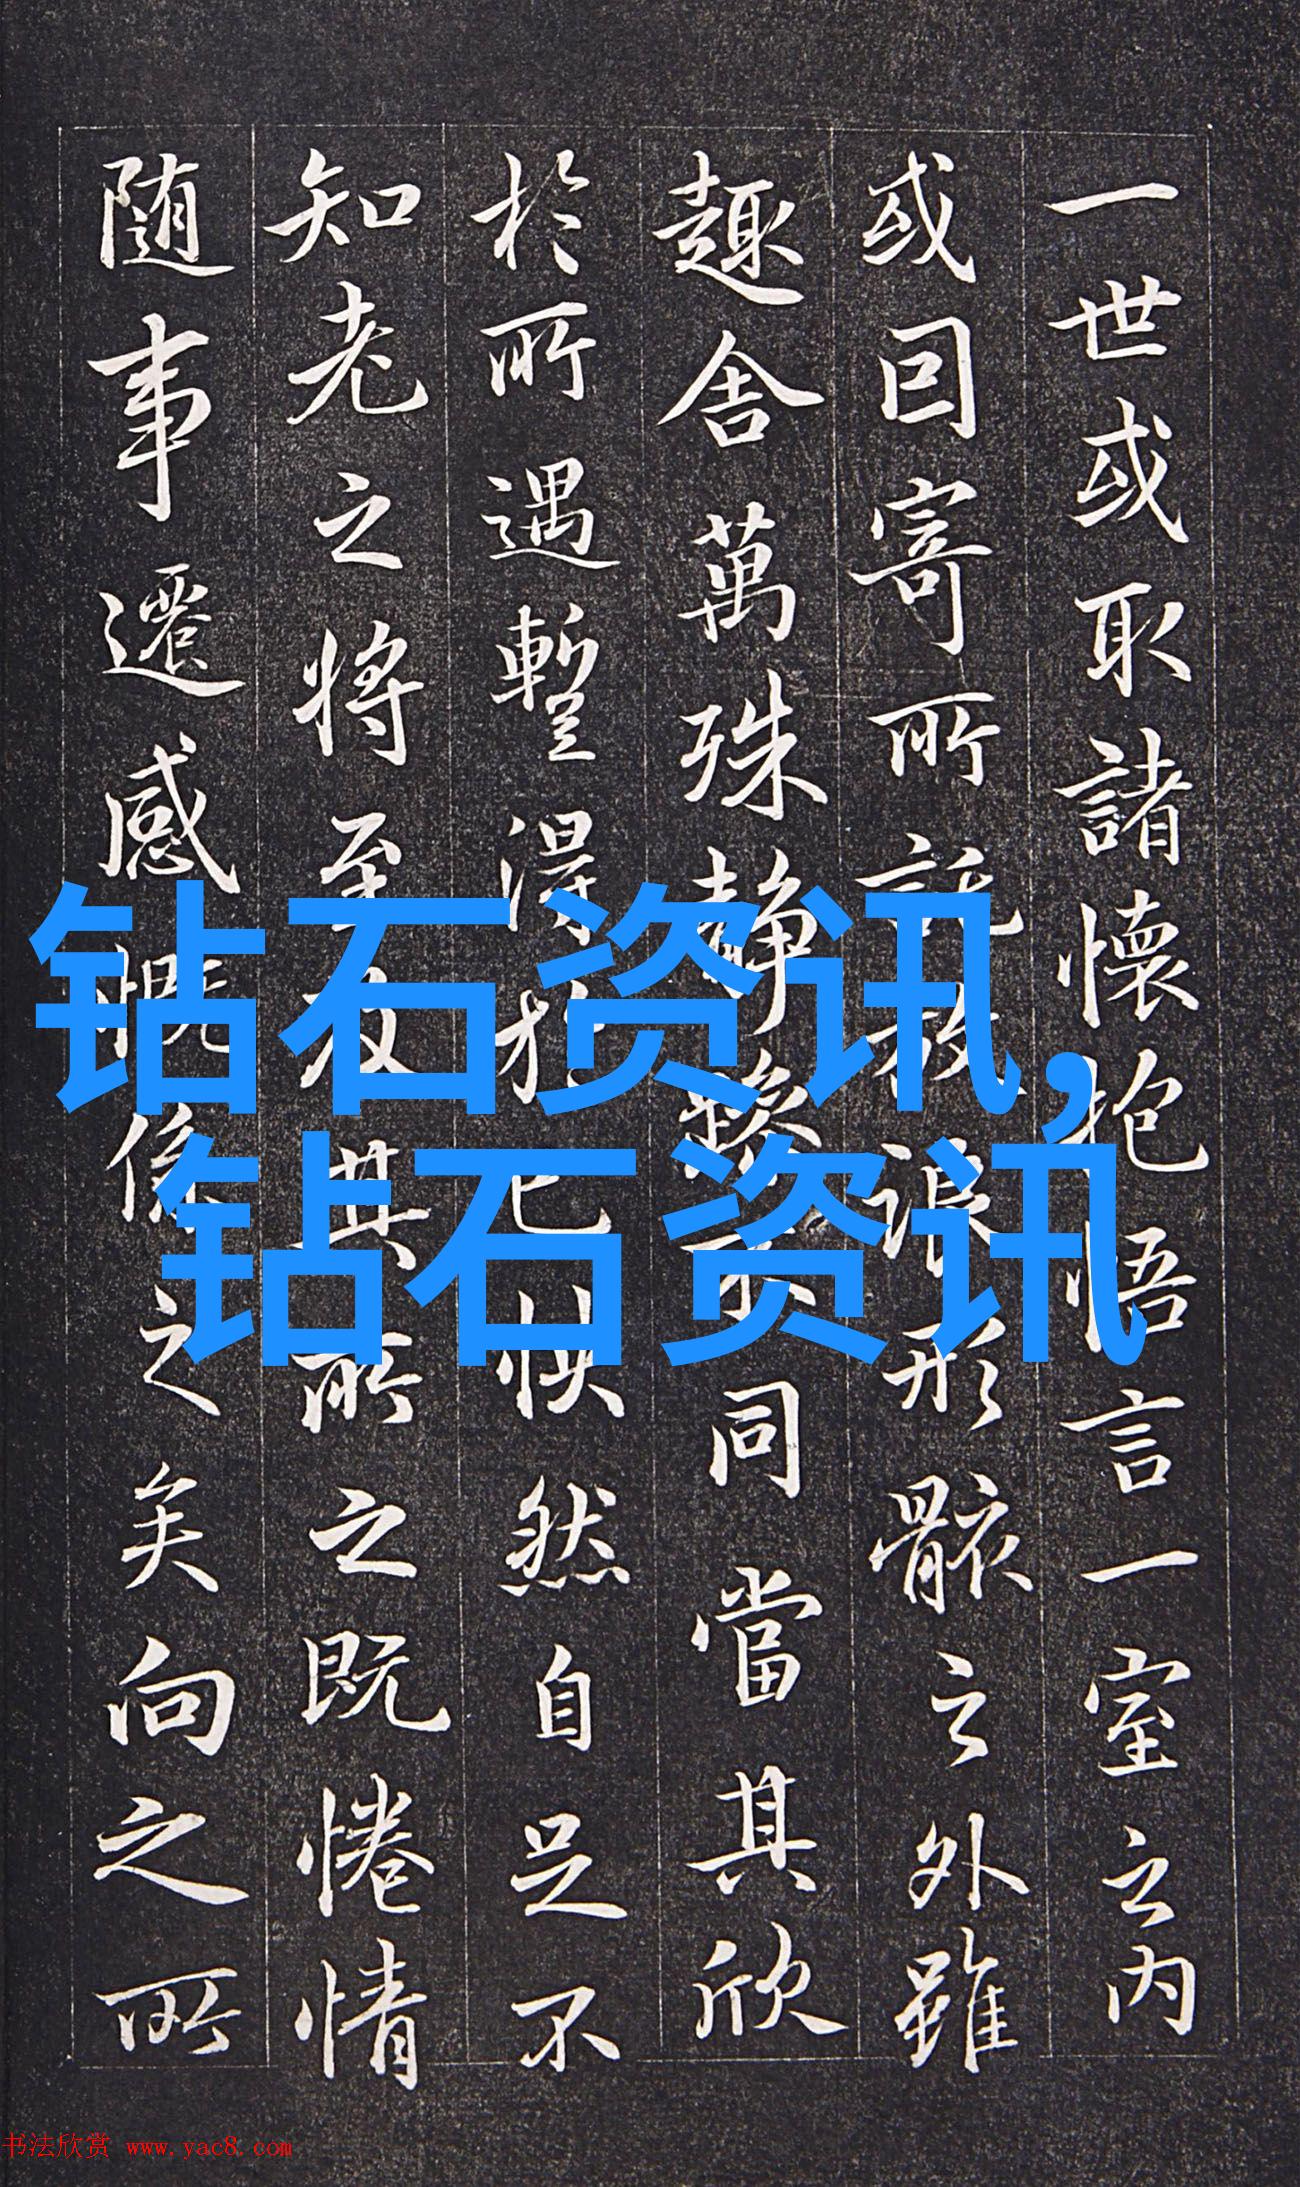 一世或取諸懷抱悟言一室之内
或因寄所託放浪形骸之外雖
趣舍萬殊静躁不同當其欣
於所遇暫得於己快然自足不
知老之將至及其所之既惓情
随事遷感慨係之矣向之所
钻石资讯,
钻石资讯
书法欣赏 www.yac8.com